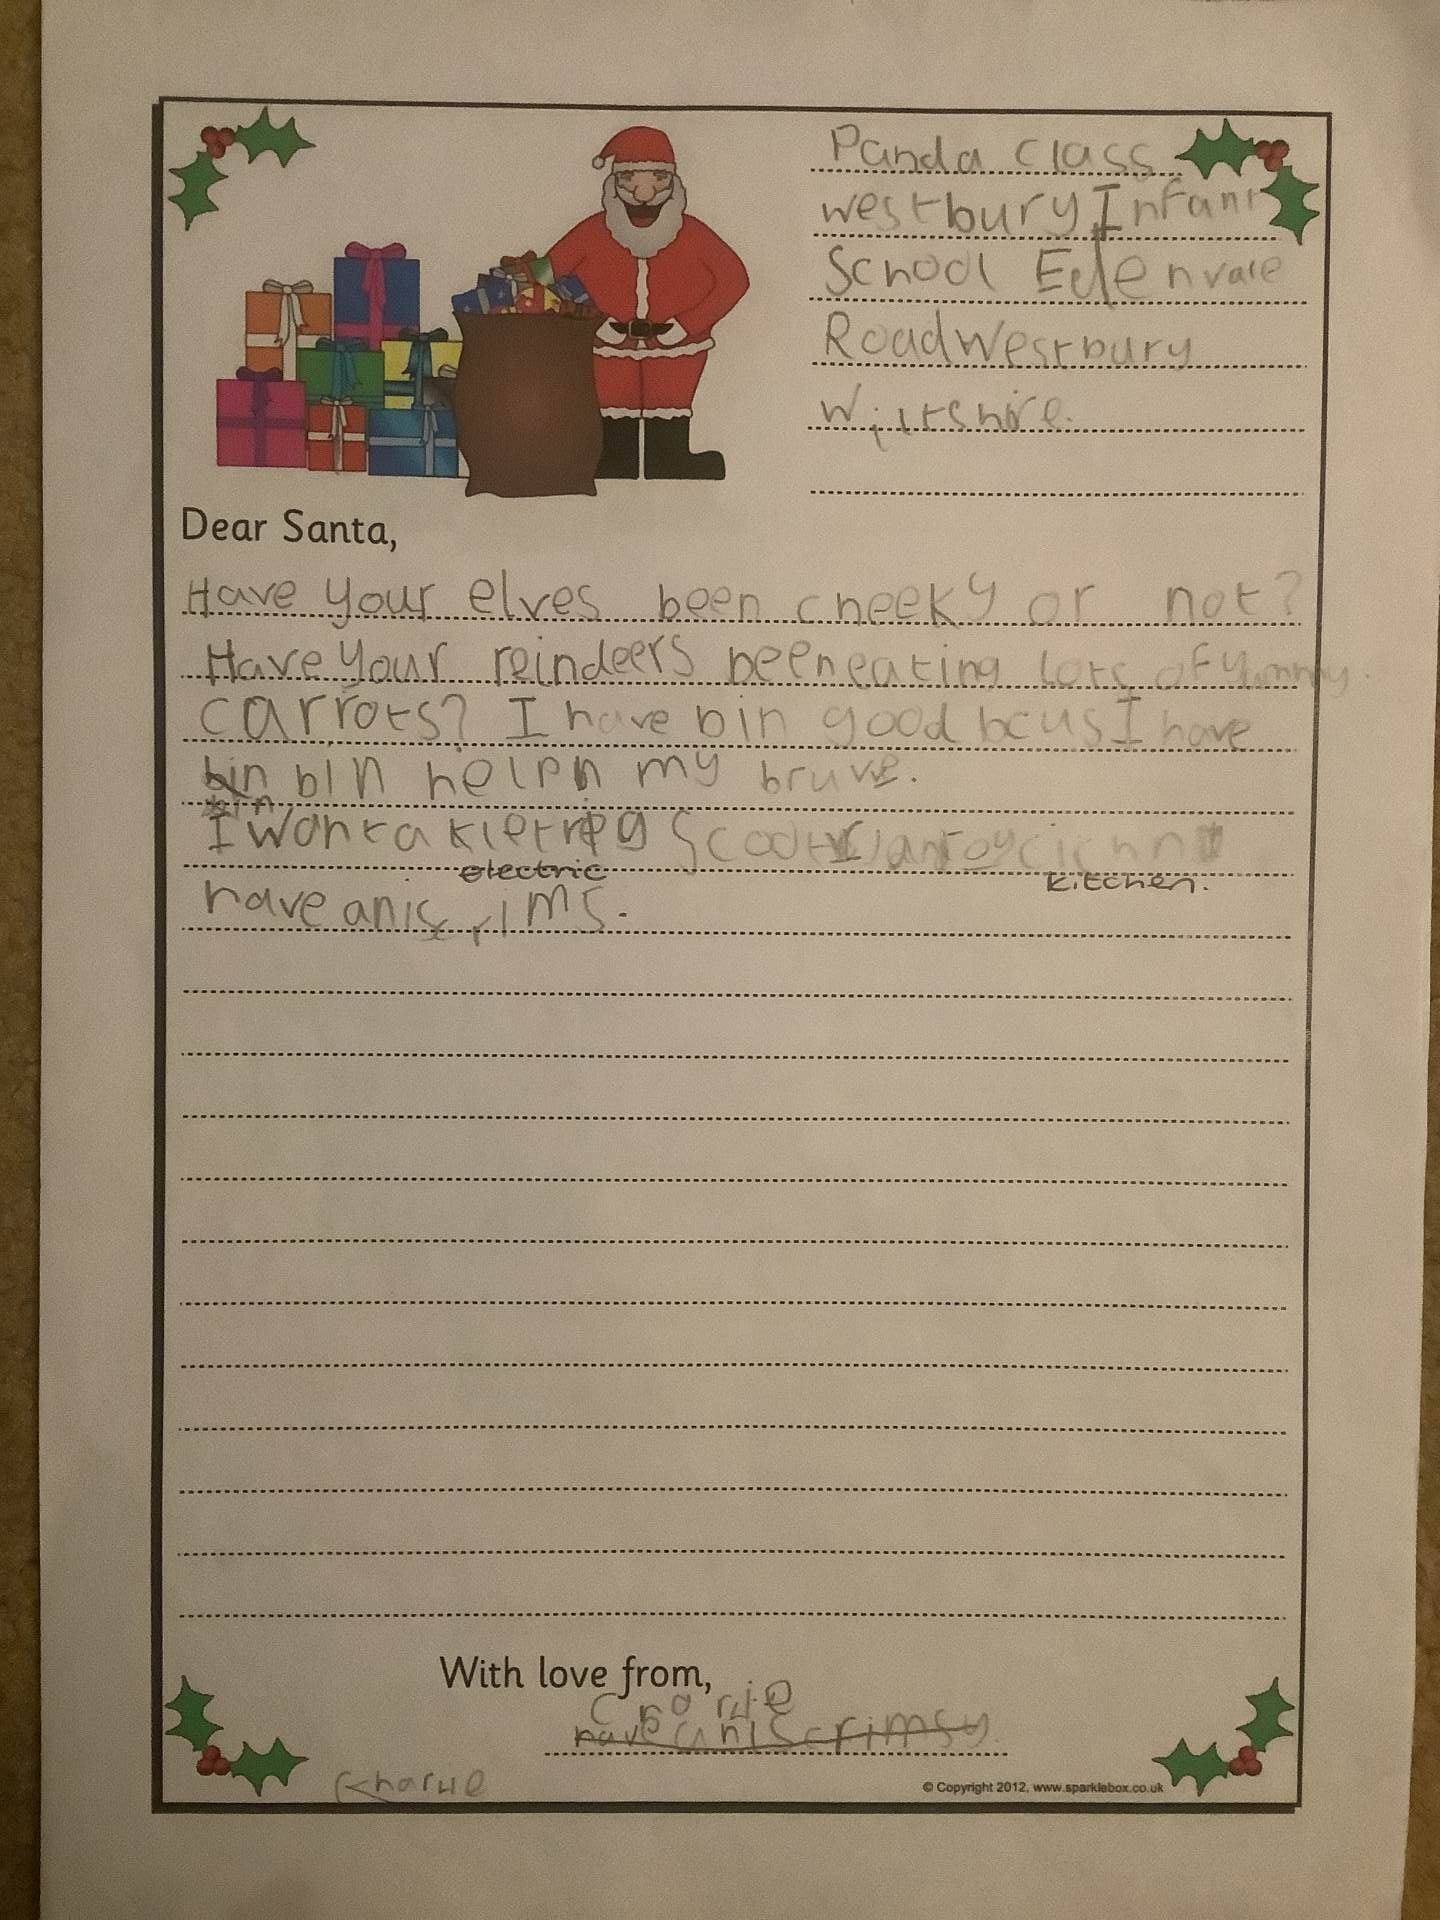 Panda class
westbury Infant
School Edenvale
Road Westbury
Wiltshire.
Dear Santa,
Have your elves been cheeky or not?
Have your reindeers been eating lots of yummy
carrots? I have bin good bcus I have
bin bin helpn my bruve.
bin
I want a
electric
kitchen.
have an
With love from,
Charlie
have
Kharlie
© Copyright 2012, www.sparklebox.co.uk